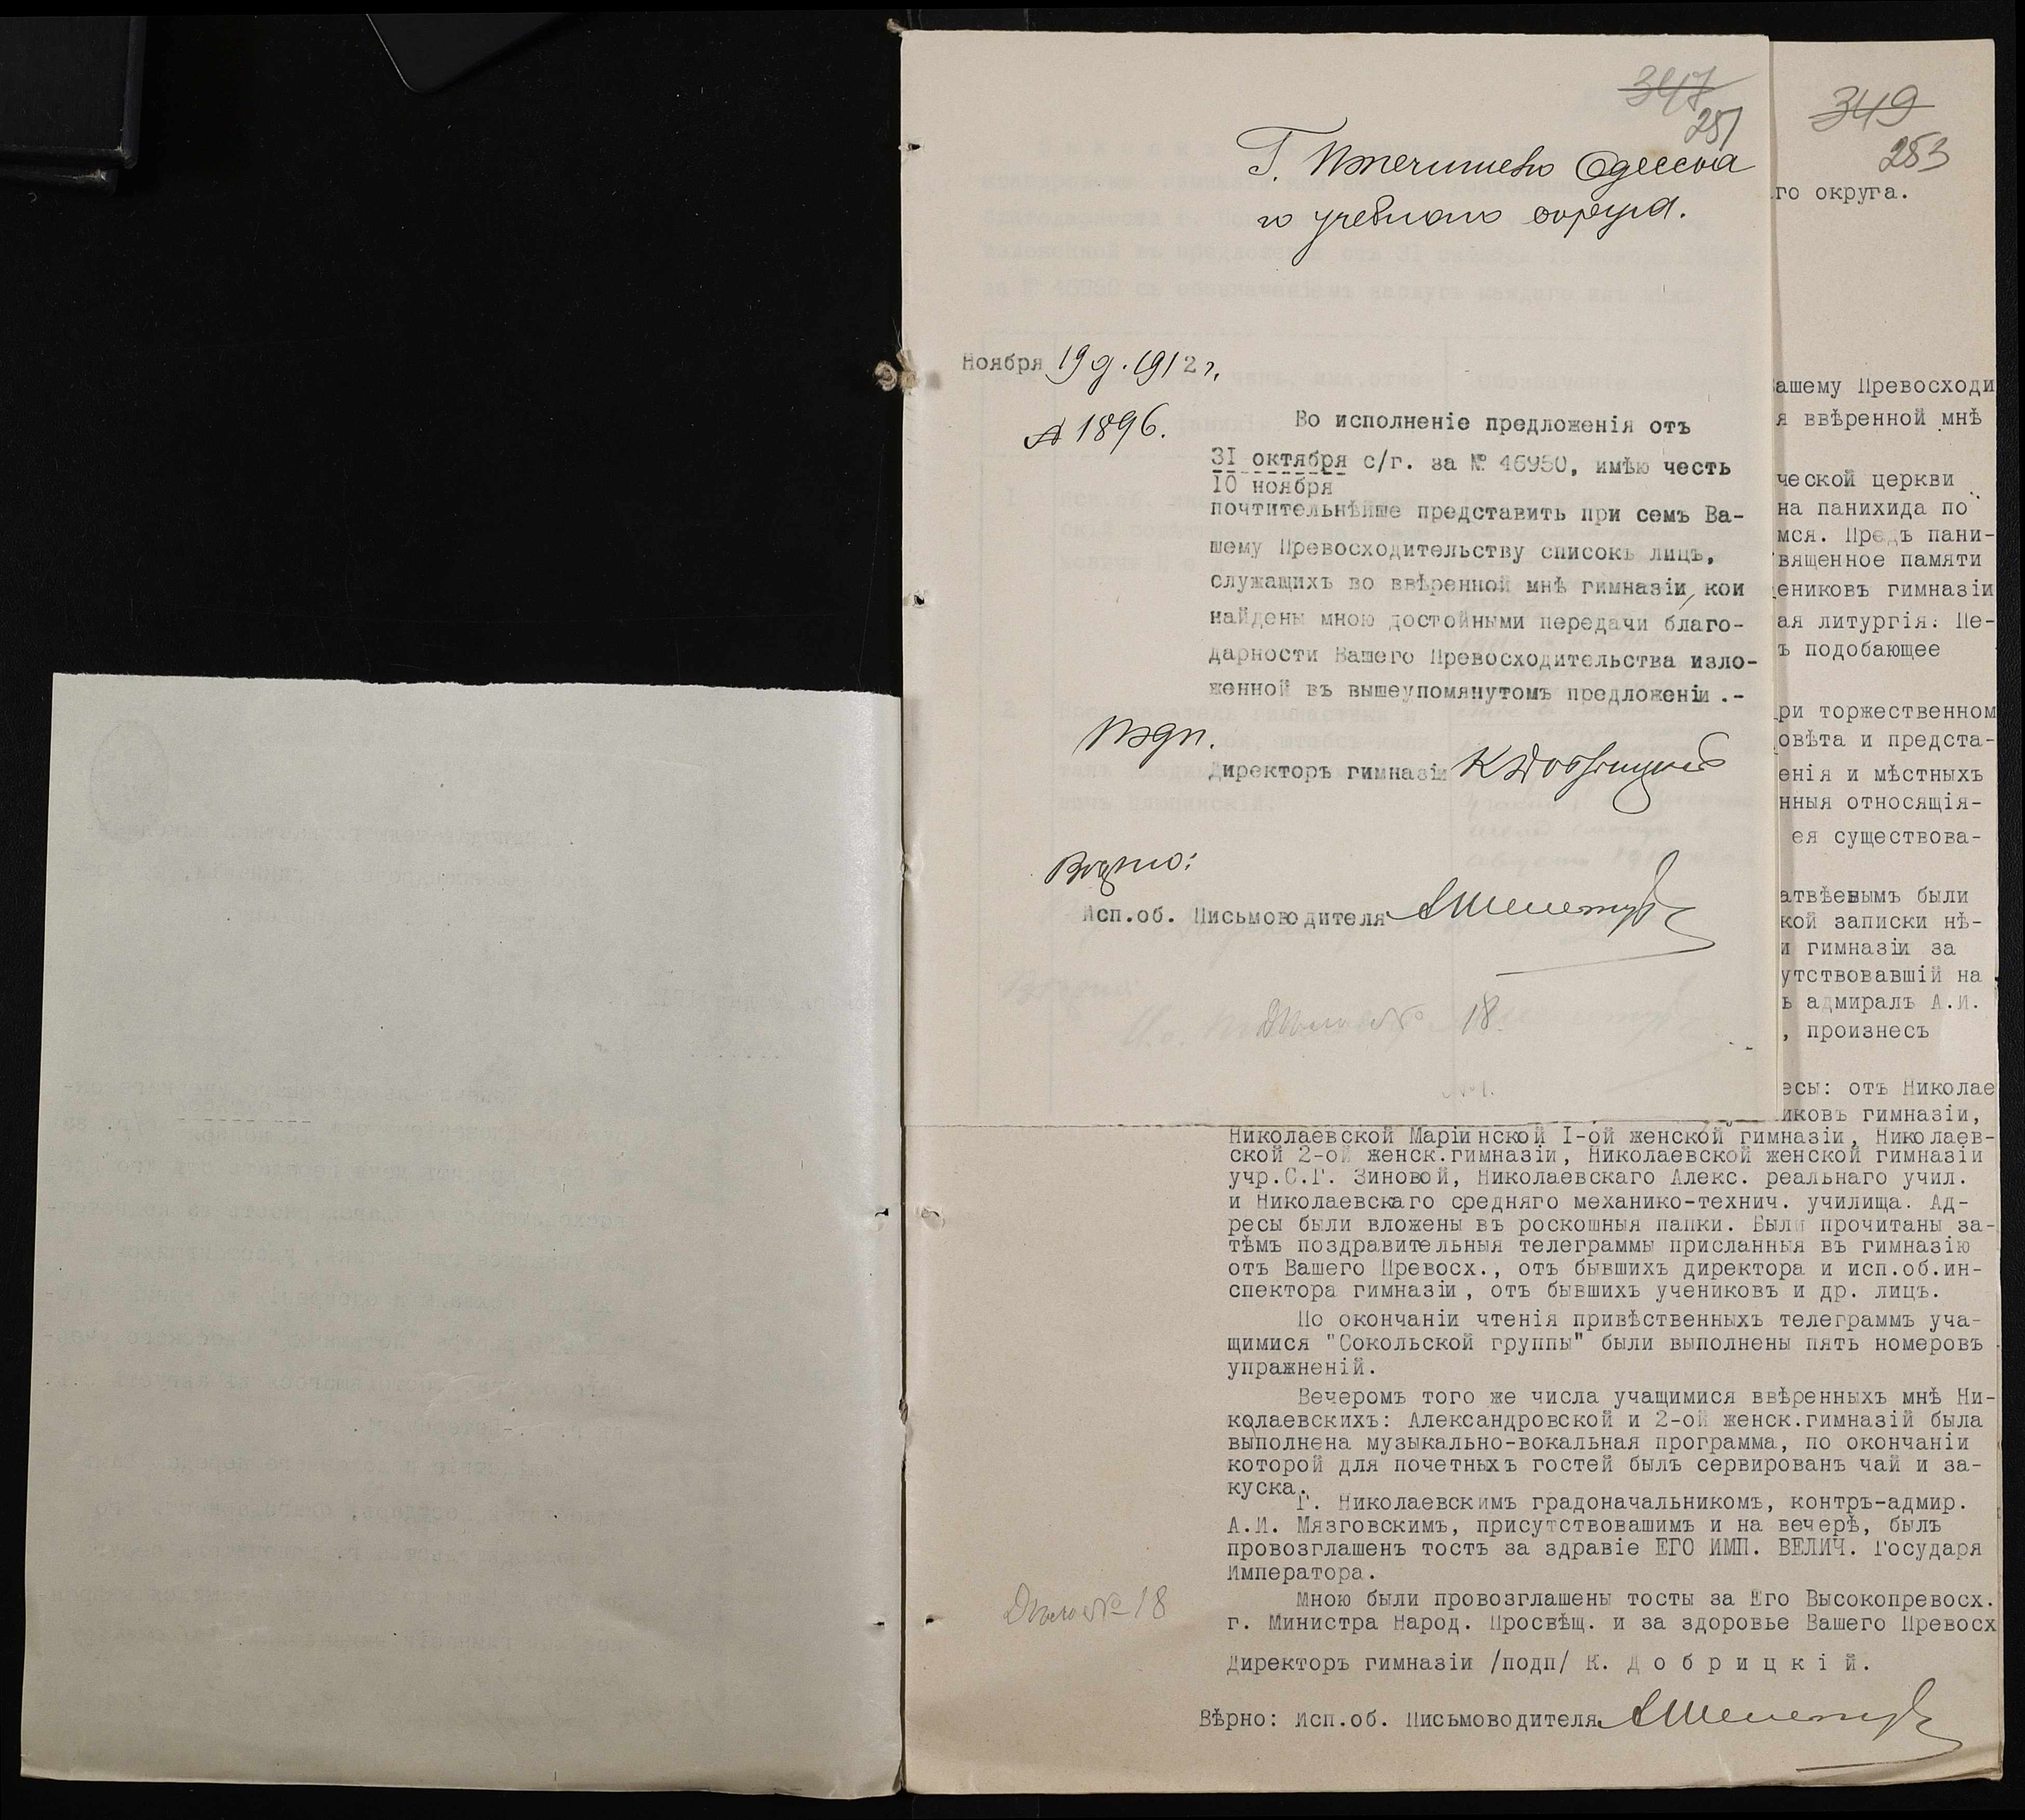 347
251
Г. Попечителю Одесска
го учебнаго округа.
Ноября 19 д. 1912 г.
№ 1896.
Во исполненіе предложенія отъ
31 октября с/г. за № 46950, имѣю честь
10 ноября
почтительнѣйше представить при семъ Ва-
шему Превосходительству списокъ лицъ,
служащихъ во ввѣренной мнѣ гимназіи, кои
найдены мною достойными передачи благо-
дарности Вашего Превосходительства изло-
женной въ вышеупомянутомъ предложеніи .-
Подп.
Директоръ гимназіи К Добрицкій
Вѣрно:
Исп.об. Письмоводителя
Дѣло № 18.
№ 1.
349
253
го округа.
ашему Превосходи
я ввѣренной мнѣ
ческой церкви
на панихида по
мся. Предъ пани-
вященное памяти
ениковъ гимназіи
ая литургія. Пе-
ъ подобающее
ри торжественном
овѣта и предста-
енія и мѣстныхъ
нныя относящія-
ея существова-
атвѣевымъ были
кой записки нѣ-
и гимназіи за
утствовавшій на
ь адмиралъ А.И.
, произнесъ
есы: отъ Николае
иковъ гимназіи,
Николаевской Маріинской I-ой женской гимназіи, Николаев-
ской 2-ой женск.гимназіи, Николаевской женской гимназіи
учр.С.Г. Зиновой, Николаевскаго Алекс. реальнаго учил.
и Николаевскаго средняго механико-технич. училища. Ад-
ресы были вложены въ роскошныя папки. Были прочитаны за-
тѣмъ поздравительныя телеграммы присланныя въ гимназію
отъ Вашего Превосх., отъ бывшихъ директора и исп.об.ин-
спектора гимназіи, отъ бывшихъ учениковъ и др. лицъ.
По окончаніи чтенія привѣтственныхъ телеграммъ уча-
щимися "Сокольской группы" были выполнены пять номеровъ
упражненій.
Вечеромъ того же числа учащимися ввѣренныхъ мнѣ Ни-
колаевскихъ: Александровской и 2-ой женск.гимназій была
выполнена музыкально-вокальная программа, по окончаніи
которой для почетныхъ гостей былъ сервированъ чай и за-
куска.
Г. Николаевскимъ градоначальникомъ, контръ-адмир.
А.И. Мязговскимъ, присутствовашимъ и на вечерѣ, былъ
провозглашенъ тостъ за здравіе ЕГО ИМП. ВЕЛИЧ. Государя
Императора.
Мною были провозглашены тосты за Его Высокопревосх.
г. Министра Народ. Просвѣщ. и за здоровье Вашего Превосх
Директоръ гимназіи /подп/ К. Д о б р и ц к і й.
Вѣрно: Исп.об. Письмоводителя
Дѣло № 18